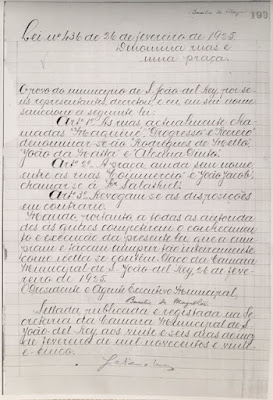 Basilio de Magalhães
199
Lei nº 436 de 26 de fevereiro de 1925.
Denomina ruas e
uma praça.
O povo do municipio de S. João del Rey, por se-
us representantes, decretou, e eu em seu nome
sancciono a seguinte lei:
Art. 1º As ruas actualmente cha-
madas "Progresso" e
denominar-se-ão Rodrigues de Mello,
João da Matta e
Art. 2º A praça ainda sem nome,
entre as ruas "Commercio" e "João Jacob",
chamar-se-á
Art. 3º Revogam-se as disposições
em contrario.
Mando, portanto, a todas as autorida-
des ás quaes competirem o conhecimen-
to e execução da presente lei, que a cum-
pram e façam cumprir tão inteiramente
como nella se contém. Paço da Camara
Municipal de S. João del Rey, 26 de feve-
reiro de 1925.
O Presidente e Agente Executivo Municipal,
Basilio de Magalhães
Sellada, publicada e registada na Se-
cretaria da Camara Municipal de S.
João del Rey, aos vinte e seis dias do mez
de fevereiro de mil novecentos e vinte
e cinco.